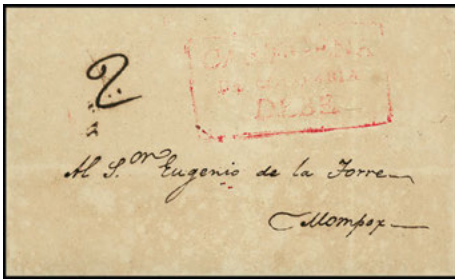 2
CARTAGENA
DE COLOMBIA
DEBE
Al S.or Eugenio de la Torre
Mompox